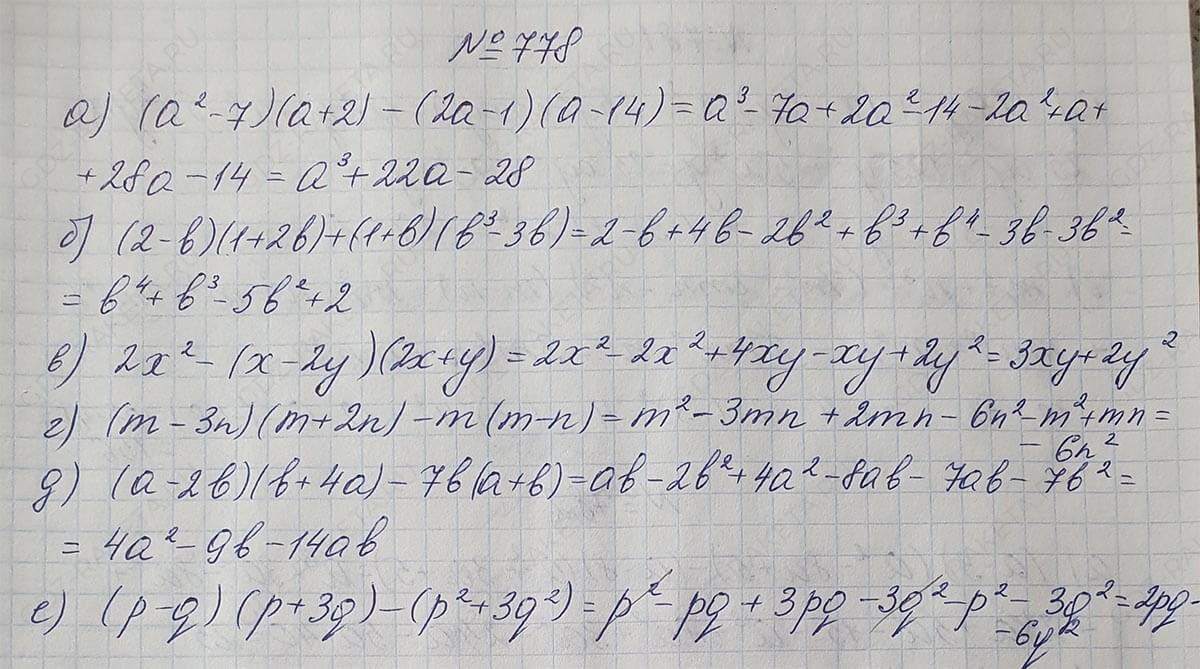 № 778
а) (a² - 7)(a + 2) - (2a - 1)(a - 14) = a³ - 7a + 2a² - 14 - 2a² + a +
+ 28a - 14 = a³ + 22a - 28
б) (2 - b)(1 + 2b) + (1 + b)(b³ - 3b) = 2 - b + 4b - 2b² + b³ + b⁴ - 3b - 3b² =
= b⁴ + b³ - 5b² + 2
в) 2x² - (x - 2y)(2x + y) = 2x² - 2x² + 4xy - xy + 2y² = 3xy + 2y²
г) (m - 3n)(m + 2n) - m(m - n) = m² - 3mn + 2mn - 6n² - m² + mn =
- 6n²
д) (a - 2b)(b + 4a) - 7b(a + b) = ab - 2b² + 4a² - 8ab - 7ab - 7b² =
= 4a² - 9b - 14ab
е) (p - q)(p + 3q) - (p² + 3q²) = p² - pq + 3pq - 3q² - p² - 3q² = 2pq -
- 6q²
GDZ-RAKETA.RU